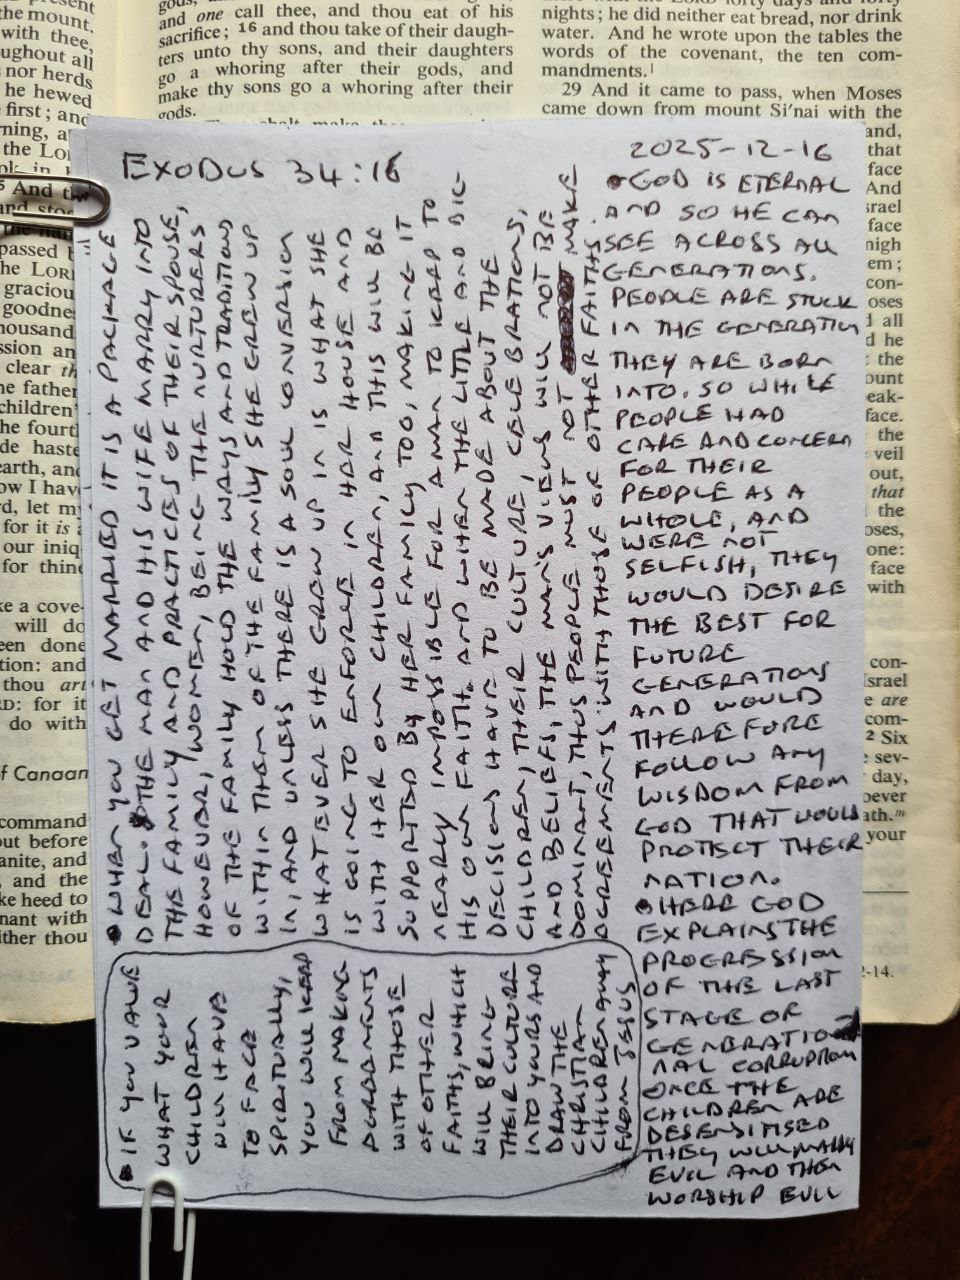 gods, and
and one call thee, and thou eat of his
sacrifice; 16 and thou take of their daugh-
ters unto thy sons, and their daughters
go a whoring after their gods, and
make thy sons go a whoring after their
gods.
nights; he did neither eat bread, nor drink
water. And he wrote upon the tables the
words of the covenant, the ten com-
mandments.
29 And it came to pass, when Moses
came down from mount Si'nai with the
EXODUS 34:16
2025-12-16
• GOD IS ETERNAL
AND SO HE CAN
SEE ACROSS ALL
GENERATIONS.
PEOPLE ARE STUCK
IN THE GENERATION
THEY ARE BORN
INTO. SO WHILE
PEOPLE HAD
CARE AND CONCERN
FOR THEIR
PEOPLE AS A
WHOLE, AND
WERE NOT
SELFISH, THEY
WOULD DESIRE
THE BEST FOR
FUTURE
GENERATIONS
AND WOULD
THEREFORE
FOLLOW ANY
WISDOM FROM
GOD THAT WOULD
PROTECT THEIR
NATION.
• HERE GOD
EXPLAINS THE
PROGRESSION
OF THE LAST
STAGE OF
GENERATIO-
NAL CORRUPTION
ONCE THE
CHILDREN ARE
DESENSITISED
THEY WILL MARRY
EVIL AND THEN
WORSHIP EVIL
• WHEN YOU GET MARRIED IT IS A PACKAGE
DEAL. THE MAN AND HIS WIFE MARRY INTO
THE FAMILY AND PRACTICES OF THEIR SPOUSE,
HOWEVER, WOMEN, BEING THE NURTURERS
OF THE FAMILY HOLD THE WAYS AND TRADITIONS
WITHIN THEM OF THE FAMILY SHE GREW UP
IN, AND UNLESS THERE IS A SOUL CONVERSION
WHATEVER SHE GREW UP IN IS WHAT SHE
IS GOING TO ENFORCE IN HER HOUSE AND
WITH HER OWN CHILDREN, AND THIS WILL BE
SUPPORTED BY HER FAMILY TOO, MAKING IT
NEARLY IMPOSSIBLE FOR A MAN TO KEEP TO
HIS OWN FAITH. AND WHEN THE LITTLE AND BIG
DECISIONS HAVE TO BE MADE ABOUT THE
CHILDREN, THEIR CULTURE, CELEBRATIONS,
AND BELIEFS, THE MAN'S VIEWS WILL NOT BE
DOMINANT, THUS PEOPLE MUST NOT MAKE
AGREEMENTS WITH THOSE OF OTHER FAITHS.
• IF YOU VALUE
WHAT YOUR
CHILDREN
WILL HAVE
TO FACE
SPIRITUALLY,
YOU WILL KEEP
FROM MAKING
AGREEMENTS
WITH THOSE
OF OTHER
FAITHS, WHICH
WILL BRING
THEIR CULTURE
INTO YOURS AND
DRAW THE
CHRISTIAN
CHILDREN AWAY
FROM JESUS